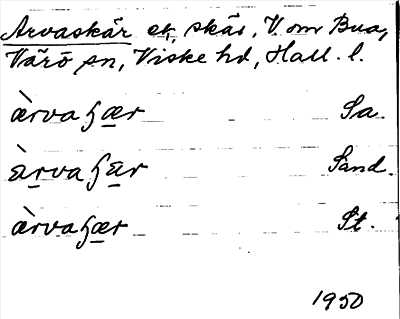 Arvaskär ek, skär, V. om Bua,
Värö sn, Viske hd, Hall. l.
ærvaʃær Sa.
àrvaʃar Sand.
ærvaʃær St.
1950